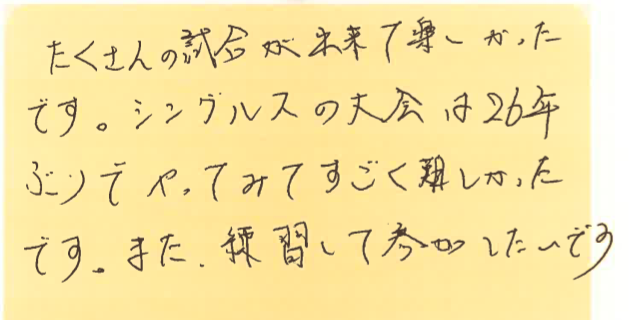 たくさんの試合が出来て楽しかった
です。シングルスの大会は26年
ぶりでやってみてすごく難しかった
です。また、練習して参加したいです